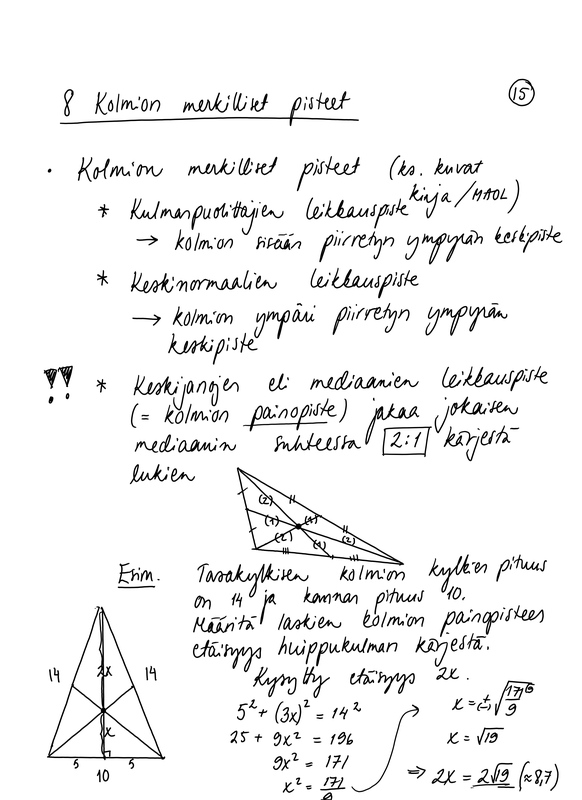 8 Kolmion merkilliset pisteet
15
• Kolmion merkilliset pisteet (ks. kuvat kirja/MAOL)
* Kulmanpuolittajien leikkauspiste
→ kolmion sisään piirretyn ympyrän keskipiste
* Keskinormaalien leikkauspiste
→ kolmion ympäri piirretyn ympyrän
keskipiste
!! * Keskijanojen eli mediaanien leikkauspiste
(= kolmion painopiste) jakaa jokaisen
mediaanin suhteessa 2:1 kärjestä
lukien
(2) ||
(1) (1) ||
(2) (1) (2)
||| |||
Esim. Tasakylkisen kolmion kylkien pituus
on 14 ja kannan pituus 10.
Määritä laskien kolmion painopisteen
etäisyys huippukulman kärjestä.
Kysytty etäisyys 2x.
14 2x 14
x
5 5
10
5² + (3x)² = 14²
25 + 9x² = 196
9x² = 171
x² = 171/9
x = (±)√171/9
x = √19
⇒ 2x = 2√19 (≈8,7)